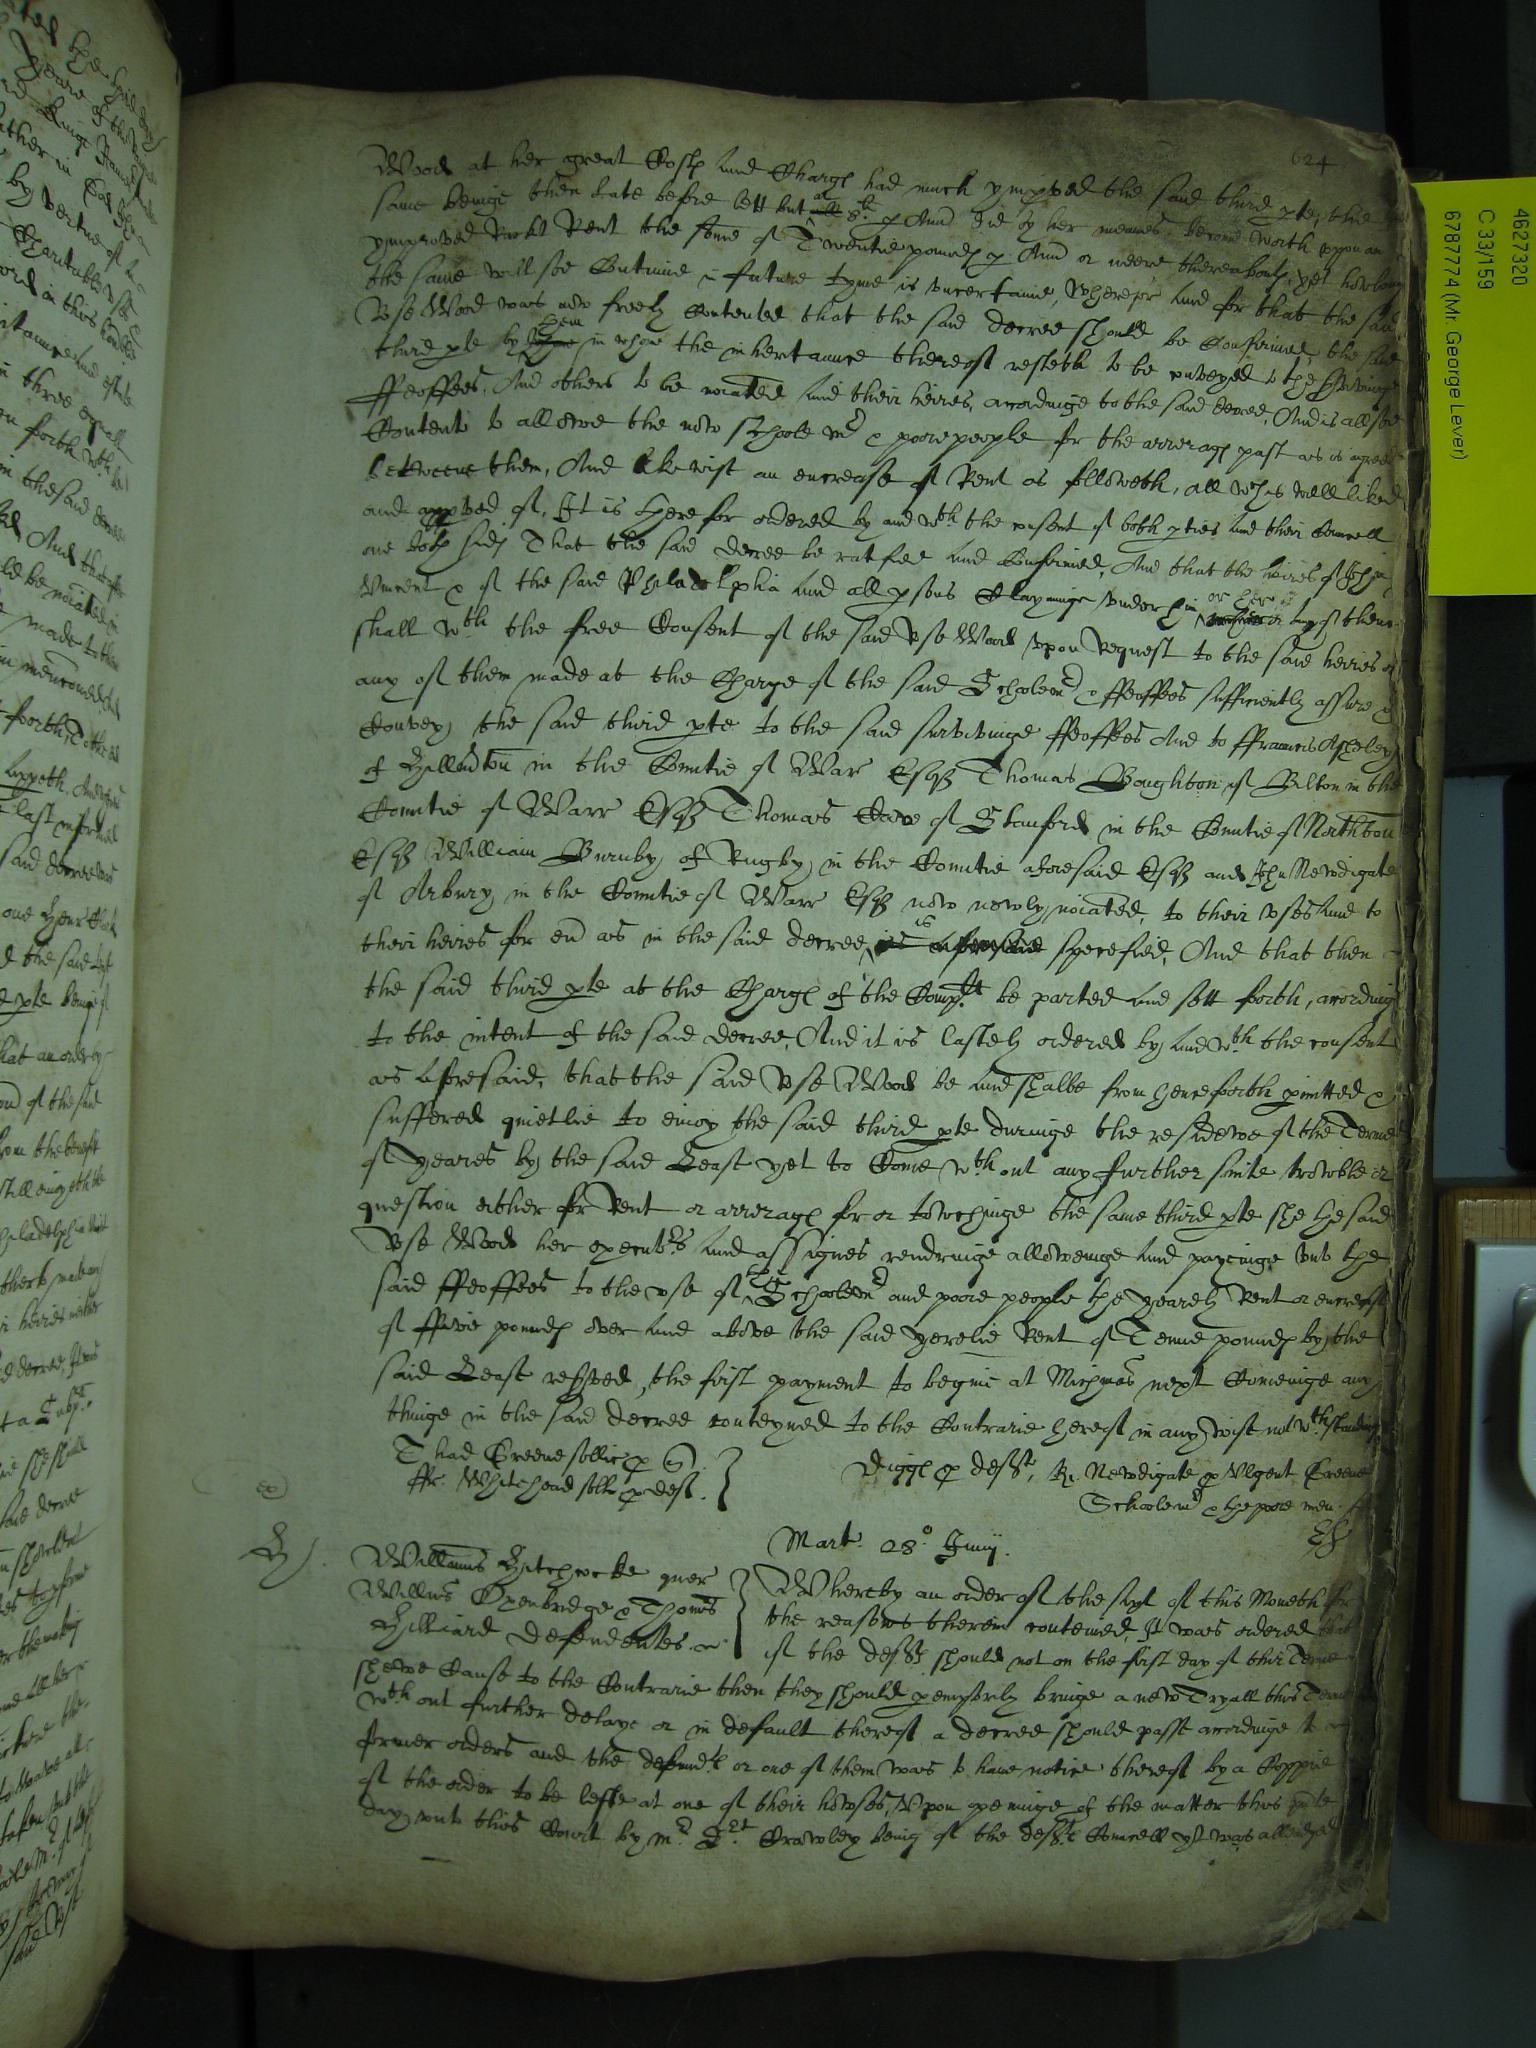 624
Wood at her great Costs and Charges had much ymproved the said third pte, the
same beinge then late before lett but at 8li p Ann and is by her meanes become worth upon an
ymproved Rackt Rent the some of Twentie pounds p Ann or neere thereabouts, yet howlong
the same will soe Continue in future tyme is uncertaine, wherefore and for that the said
Use Wood was now freely Contented that the said decree should be Confirmed, the said
third pte by them in whom the inheritaunce thereof resteth to be conveyed to the survivinge
ffeoffees, And others to be noiated and their heires, accordinge to the said decree, And is allsoe
Content to allowe the now schoole mr & poore people for the arrerages past as is agreed
betweene them, And likewise an encrease of Rent as followeth, all wch is well liked
and appved of, It is therefor ordered by and wth the consent of both pties and their Councell
one both sides That the said decree be ratified and Confirmed, And that the heires of John
Vincent & of the said Philadelphia and all psons Clayminge under him or her or any of them
shall wth the free Consent of the said Use Wood upon request to the said heires or
any of them made at the Charge of the said Schoolemr & ffeoffees sufficiently assure &
Convey the said third pte to the said survivinge ffeoffees And to ffrauncis Asheley
of Hillmorton in the Countie of War Esqr Thomas Boughton of Bilton in the
Countie of Warr Esqr Thomas Cave of Stanford in the Countie of Northton
Esqr William Burnby of Rugby in the Countie aforesaid Esqr and John Newdigate
of Arbury in the Countie of Warr Esqr now newly noiated, to their uses and to
their heires for end as in the said decree is specefied, And that then
the said third pte at the Charges of the Complt be parted and sett forth, accordinge
to the intent of the said decree, And it is lastely ordered by and wth the consent
as aforesaid, that the said Use Wood be and shalbe from henceforth pmitted &
suffered quietlie to enioy the said third pte duringe the residewe of the Terme
of yeares by the said Lease yet to Come wthout any further suite trowble or
question either for Rent or arrerages for or towchinge the same third pte she the said
Use Wood her executrs and assignes rendringe alloweinge and payeinge unto the
said ffeoffees to the use of the Schoolemr and poore people the yearely Rent or encrease
of ffive pounds over and above the said yerelie Rent of Tenne pounds by the
said Lease reserved, the first payment to beginne at Michmas next Comeinge any
thinge in the said decree conteyned to the Contrarie hereof in any wise not wthstandinge
Thad Greene sollic p Q
ffr. Whitehead sollr p def.
Digges p deft, Ri. Newdigate p Nlgent Greene
Schoolemr & the poore men.
Mart. 28o Junij.
Willimus Hitchcocke quer
Willms Oxenbredge & Thomas
Hilliard Defendentes.
Whereby an order of the sixt of this Moneth for
the reasons therein conteined, It was ordered that
if the defts should not on the first day of this Terme
shewe Cause to the Contrarie then they should pemptorily bringe a new Tryall this Terme
wthout further delaye or in default thereof a decree should passe accordinge to
former orders and the defendts or one of them was to have notice thereof by a Coppie
of the order to be lefte at one of their howses, Upon openinge of the matter this pnte
day unto this Court by mr Srt Crawley being of the defts Councell yt was alledged
4627320
C 33/159
67877774 (Mr. George Lever)